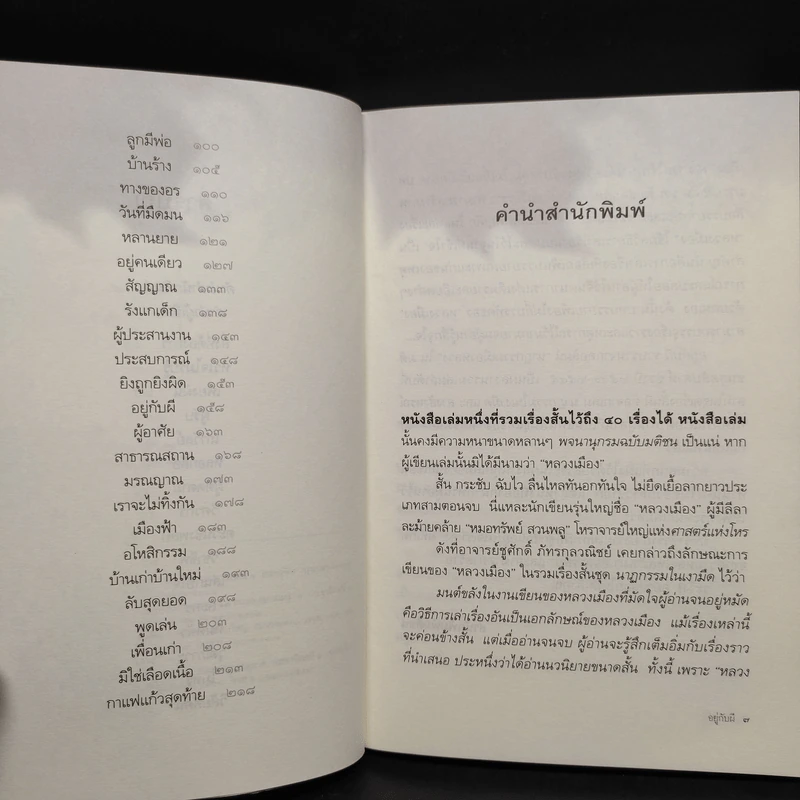 ลูกมีพ่อ ๑๐๐
บ้านร้าง ๑๐๕
ทางของอร ๑๑๐
วันที่มืดมน ๑๑๖
หลานยาย ๑๒๑
อยู่คนเดียว ๑๒๗
สัญญาณ ๑๓๓
รังแกเด็ก ๑๓๘
ผู้ประสานงาน ๑๔๓
ประสบการณ์ ๑๔๘
ยิงถูกยิงผิด ๑๕๓
อยู่กับผี ๑๕๘
ผู้อาศัย ๑๖๓
สาธารณสถาน ๑๖๘
มรณญาณ ๑๗๓
เราจะไม่ทิ้งกัน ๑๗๘
เมืองฟ้า ๑๘๓
อโหสิกรรม ๑๘๘
บ้านเก่าบ้านใหม่ ๑๙๓
ลับสุดยอด ๑๙๘
พูดเล่น ๒๐๓
เพื่อนเก่า ๒๐๘
มิใช่เลือดเนื้อ ๒๑๓
กาแฟแก้วสุดท้าย ๒๑๘
คำนำสำนักพิมพ์
หนังสือเล่มหนึ่งที่รวมเรื่องสั้นไว้ถึง ๔๐ เรื่องได้ หนังสือเล่ม
นั้นคงมีความหนาขนาดหลานๆ พจนานุกรมฉบับมติชน เป็นแน่ หาก
ผู้เขียนเล่มนั้นมิได้มีนามว่า "หลวงเมือง"
สั้น กระชับ ฉับไว ลื่นไหลทันอกทันใจ ไม่ยืดเยื้อลากยาวประ
เภทสามตอนจบ นี่แหละนักเขียนรุ่นใหญ่ชื่อ "หลวงเมือง" ผู้มีลีลา
ละม้ายคล้าย "หมอทรัพย์ สวนพลู" โหราจารย์ใหญ่แห่งศาสตร์แห่งโหร
ดังที่อาจารย์ชูศักดิ์ ภัทรกุลวณิชย์ เคยกล่าวถึงลักษณะการ
เขียนของ "หลวงเมือง" ในรวมเรื่องสั้นชุด นาฏกรรมในเงามืด ไว้ว่า
มนต์ขลังในงานเขียนของหลวงเมืองที่มัดใจผู้อ่านจนอยู่หมัด
คือวิธีการเล่าเรื่องอันเป็นเอกลักษณ์ของหลวงเมือง แม้เรื่องเหล่านี้
จะค่อนข้างสั้น แต่เมื่ออ่านจนจบ ผู้อ่านจะรู้สึกเต็มอิ่มกับเรื่องราว
ที่นำเสนอ ประหนึ่งว่าได้อ่านนวนิยายขนาดสั้น ทั้งนี้ เพราะ "หลวง
อยู่กับผี ๗